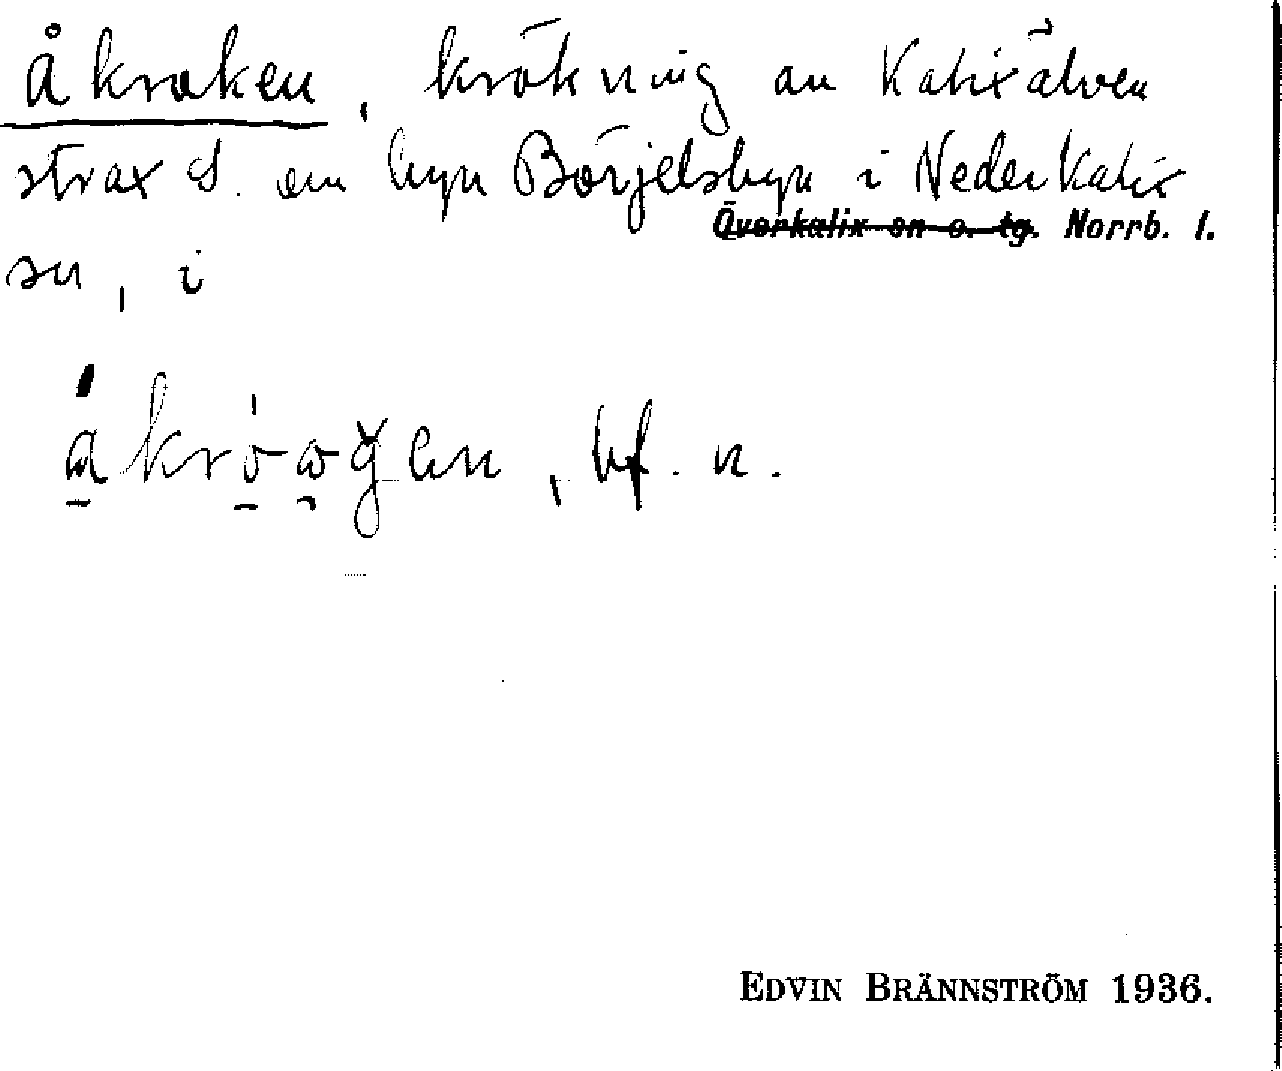 Åkroken, krökning av Kalixälven
strax S. om byn Börjelsbyn i Nederkalix
Överkalix sn o. tg. Norrb. l.
sn, i
bf. n.
EDVIN BRÄNNSTRÖM 1936.